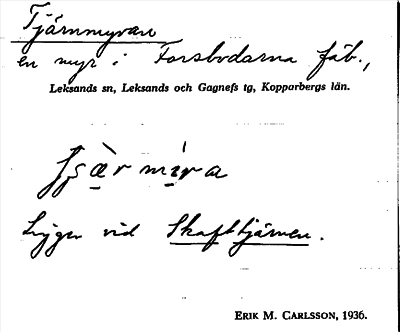 Tjärnmyran
en myr i Forsbodarna fäb.,
Leksands sn, Leksands och Gagnefs tg, Kopparbergs län.
Ligger vid Skafttjärnen.
ERIK M. CARLSSON, 1936.